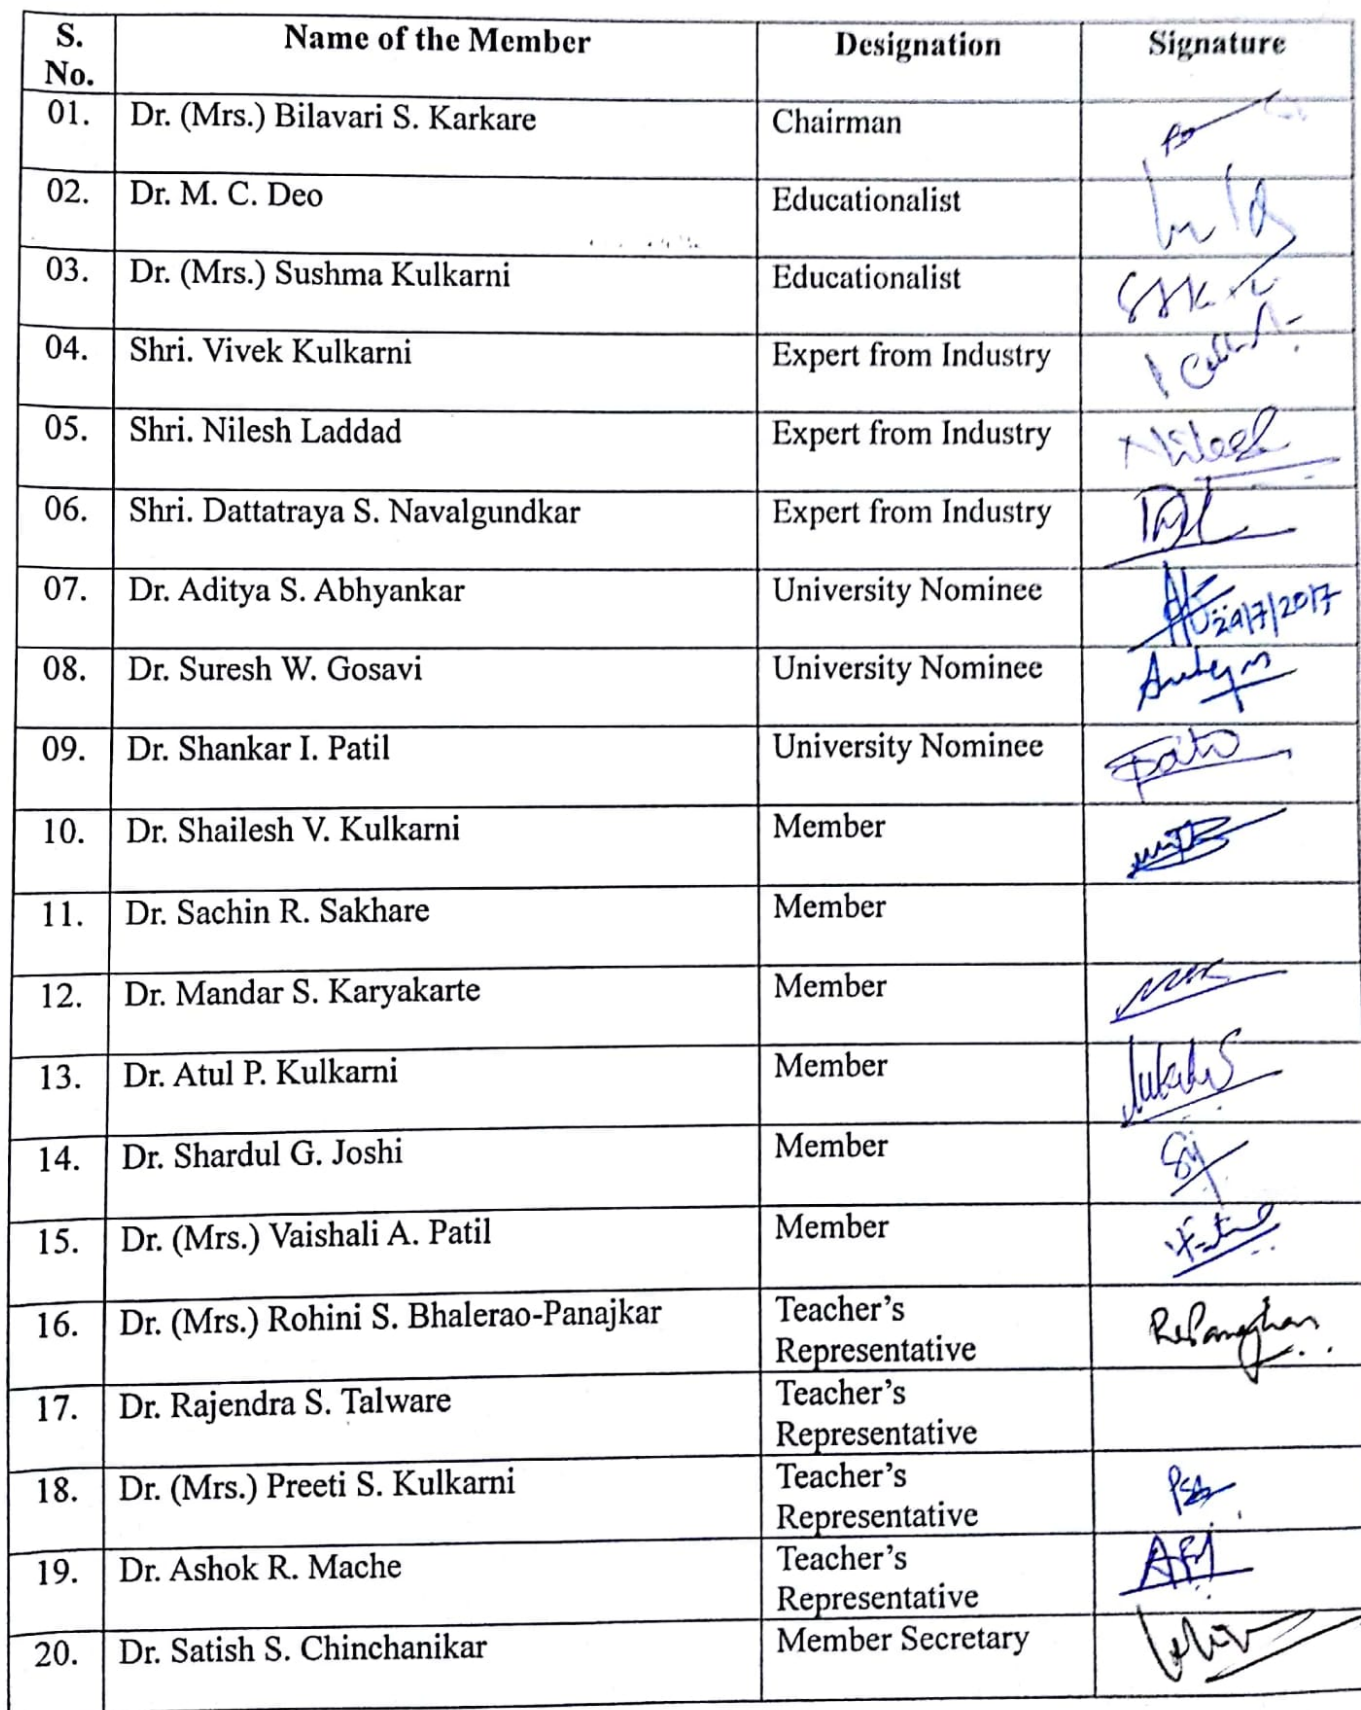 S. No. Name of the Member Designation Signature
01. Dr. (Mrs.) Bilavari S. Karkare Chairman
02. Dr. M. C. Deo Educationalist
03. Dr. (Mrs.) Sushma Kulkarni Educationalist
04. Shri. Vivek Kulkarni Expert from Industry
05. Shri. Nilesh Laddad Expert from Industry Nilesh
06. Shri. Dattatraya S. Navalgundkar Expert from Industry
07. Dr. Aditya S. Abhyankar University Nominee 29/7/2017
08. Dr. Suresh W. Gosavi University Nominee
09. Dr. Shankar I. Patil University Nominee
10. Dr. Shailesh V. Kulkarni Member
11. Dr. Sachin R. Sakhare Member
12. Dr. Mandar S. Karyakarte Member
13. Dr. Atul P. Kulkarni Member
14. Dr. Shardul G. Joshi Member
15. Dr. (Mrs.) Vaishali A. Patil Member
16. Dr. (Mrs.) Rohini S. Bhalerao-Panajkar Teacher's Representative
17. Dr. Rajendra S. Talware Teacher's Representative
18. Dr. (Mrs.) Preeti S. Kulkarni Teacher's Representative
19. Dr. Ashok R. Mache Teacher's Representative
20. Dr. Satish S. Chinchanikar Member Secretary